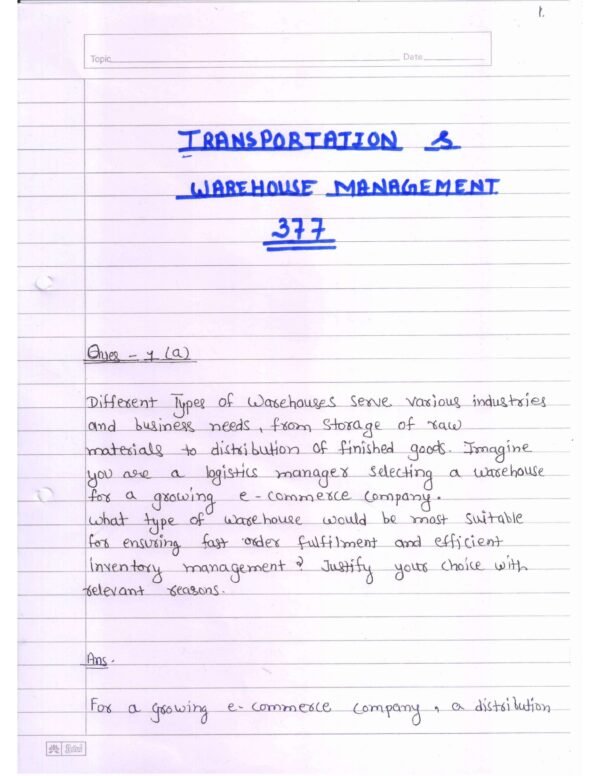 1.
Topic Date
TRANSPORTATION &
WAREHOUSE MANAGEMENT
377
Ques - 1 (a)
Different Types of Warehouses serve various industries
and business needs, from storage of raw
materials to distribution of finished goods. Imagine
you are a logistics manager selecting a warehouse
for a growing e-commerce company.
What type of warehouse would be most suitable
for ensuring fast order fulfilment and efficient
inventory management? Justify your choice with
relevant reasons.
Ans.
For a growing e-commerce company, a distribution